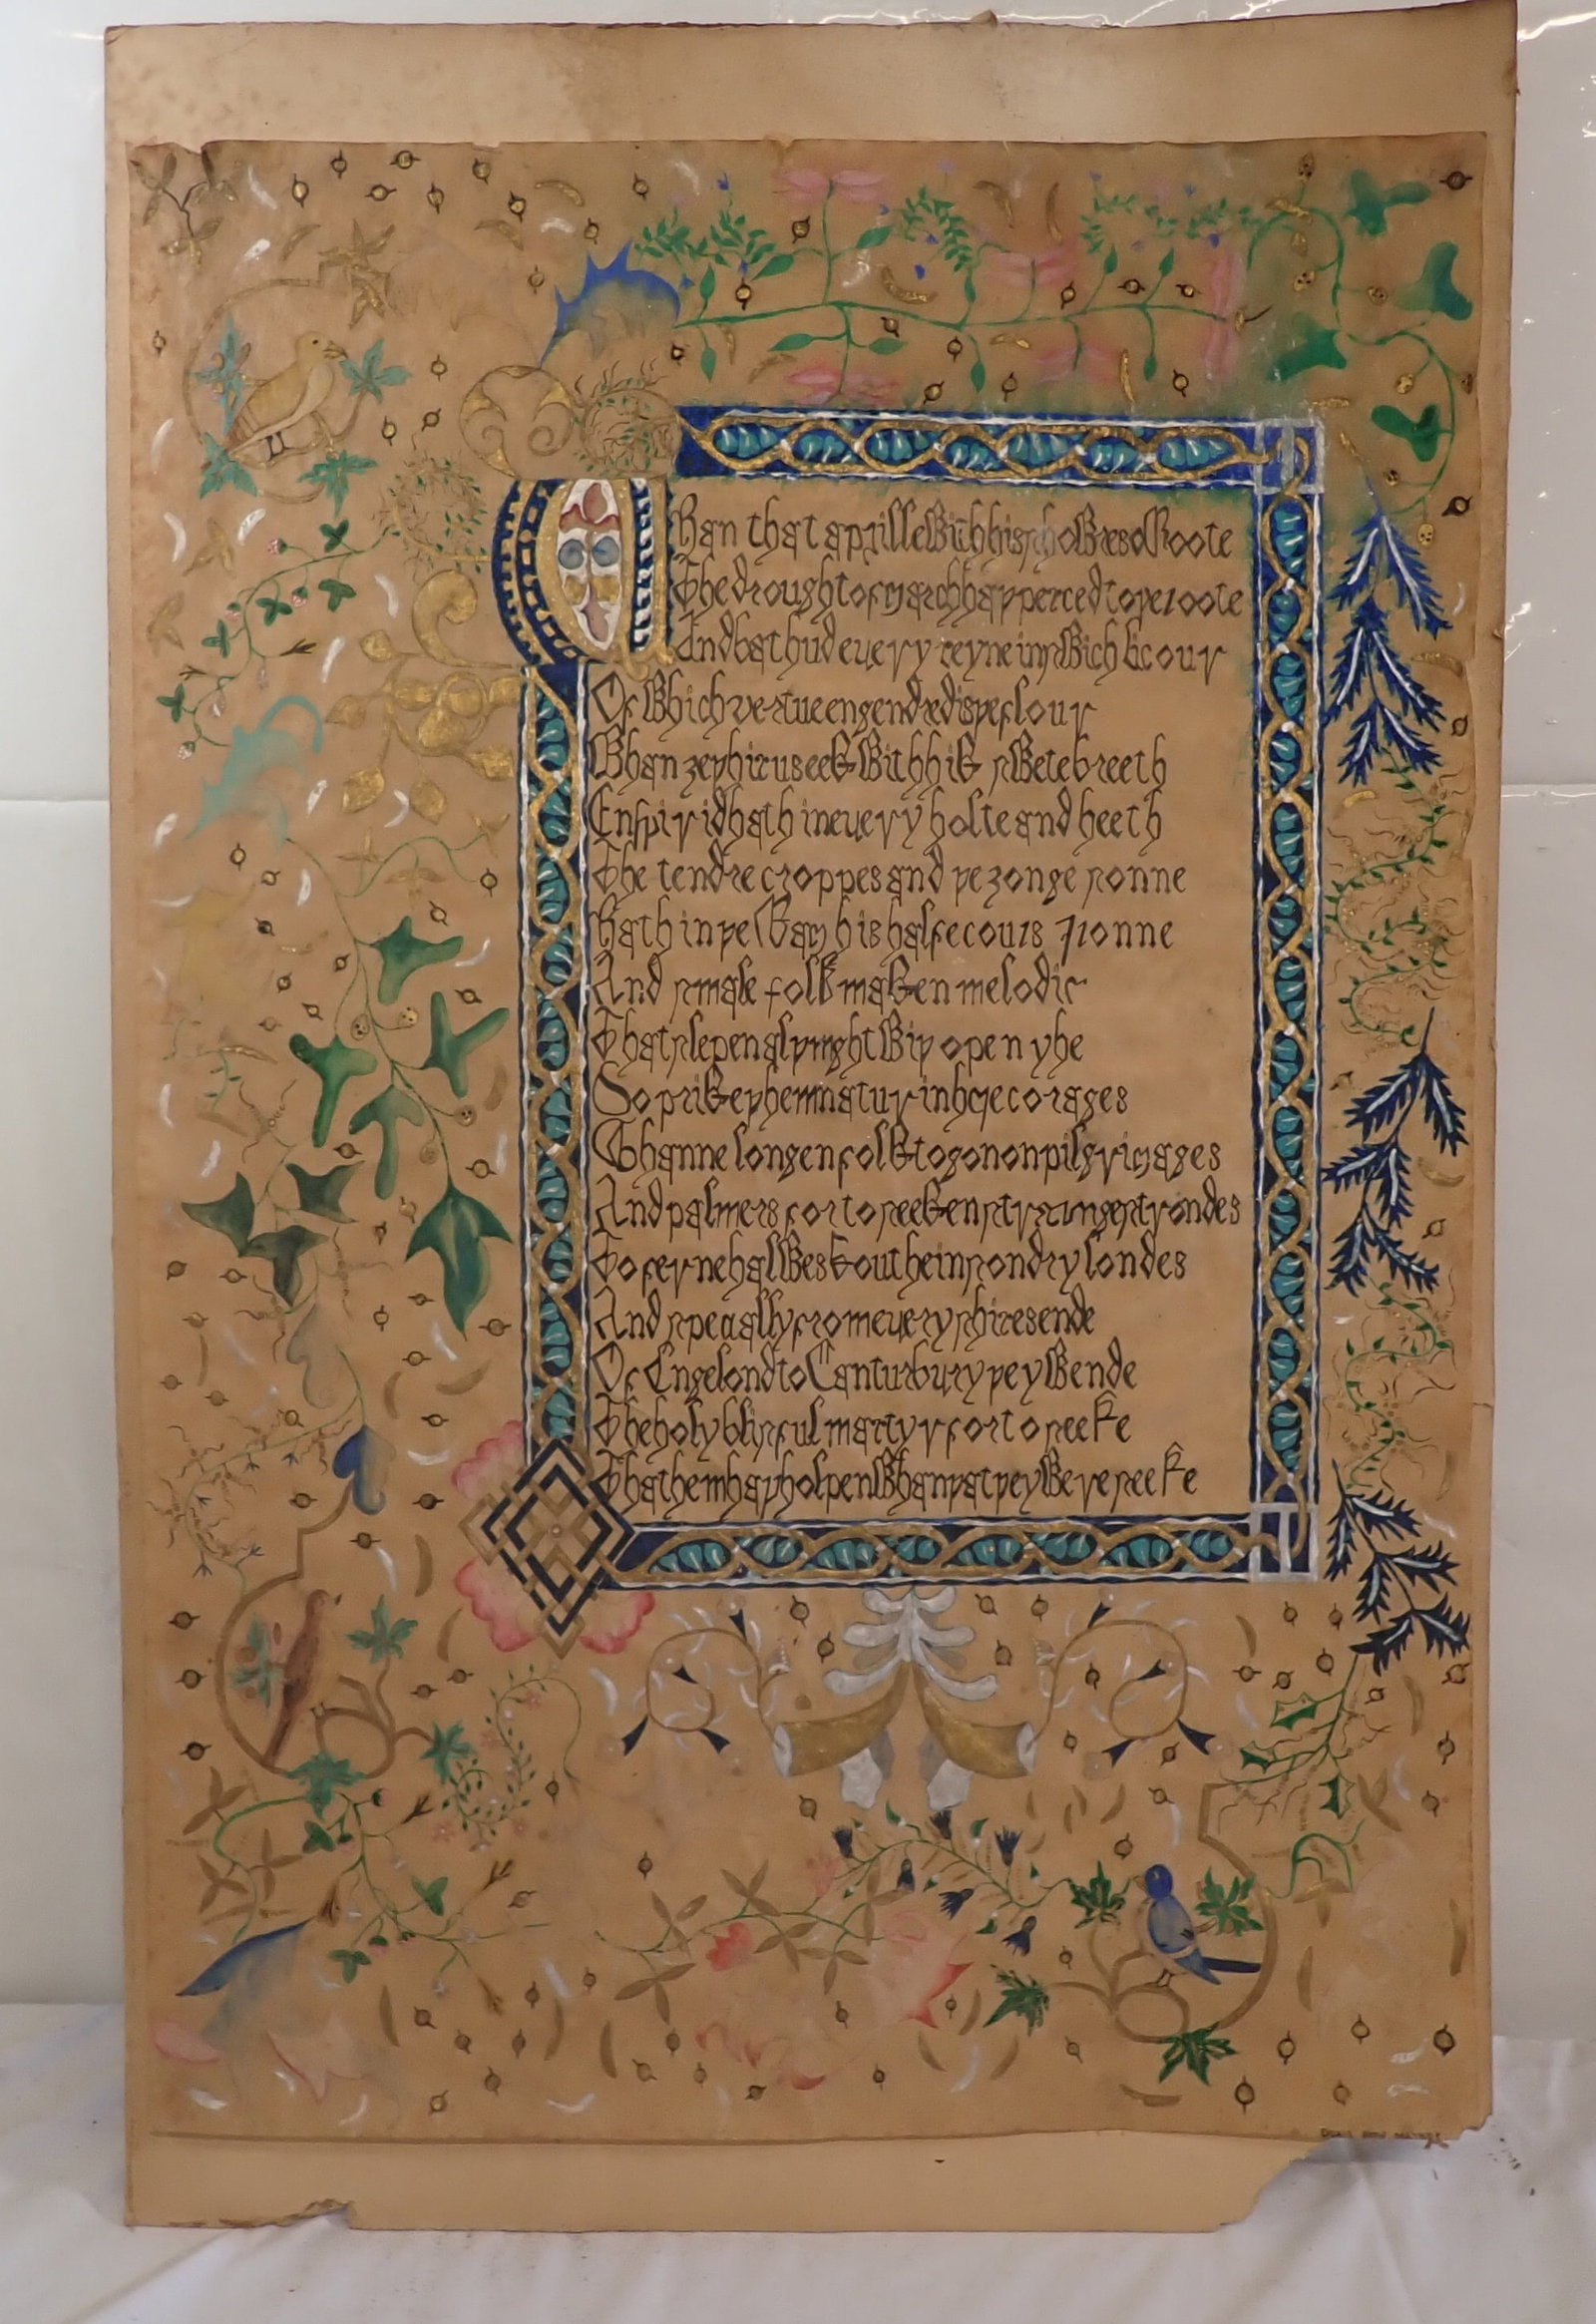 Whan that aprille with his schowres swoote
The drought of march haþ perced to þe roote
And bathud every veyne in swich licour
Of which vertue engendred is þe flour
Whan zephirus eek with his swete breeth
Enspirid hath in every holte and heeth
The tendre croppes and þe ȝonge sonne
Hath in þe Ram his halfe cours Ironne
And smale folk maken melodie
That slepen al night wiþ open yhe
So prikeþ hem natur in here corages
Thanne longen folk to gon on pilgrimages
And palmers for to seeken straunge strondes
To ferne halwes kouthe in sondry londes
And specially from every shires ende
Of Engelond to Canturbury þey wende
The holy blisful martyr for to seeke
That hem haþ holpen whan þat þey were seeke